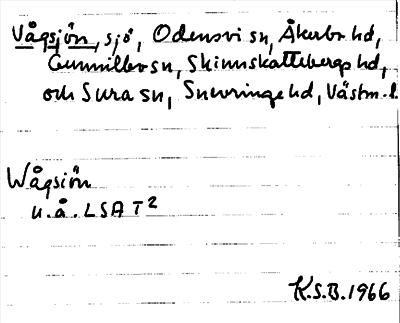 Vågsjön, sjö, Odensvi sn, Åkerbo hd,
Gunnilbo sn, Skinnskattebergs hd,
och Sura sn, Snevringe hd, Västm. l.
Wågsiön
u.å. LSA T2
K.S.B. 1966